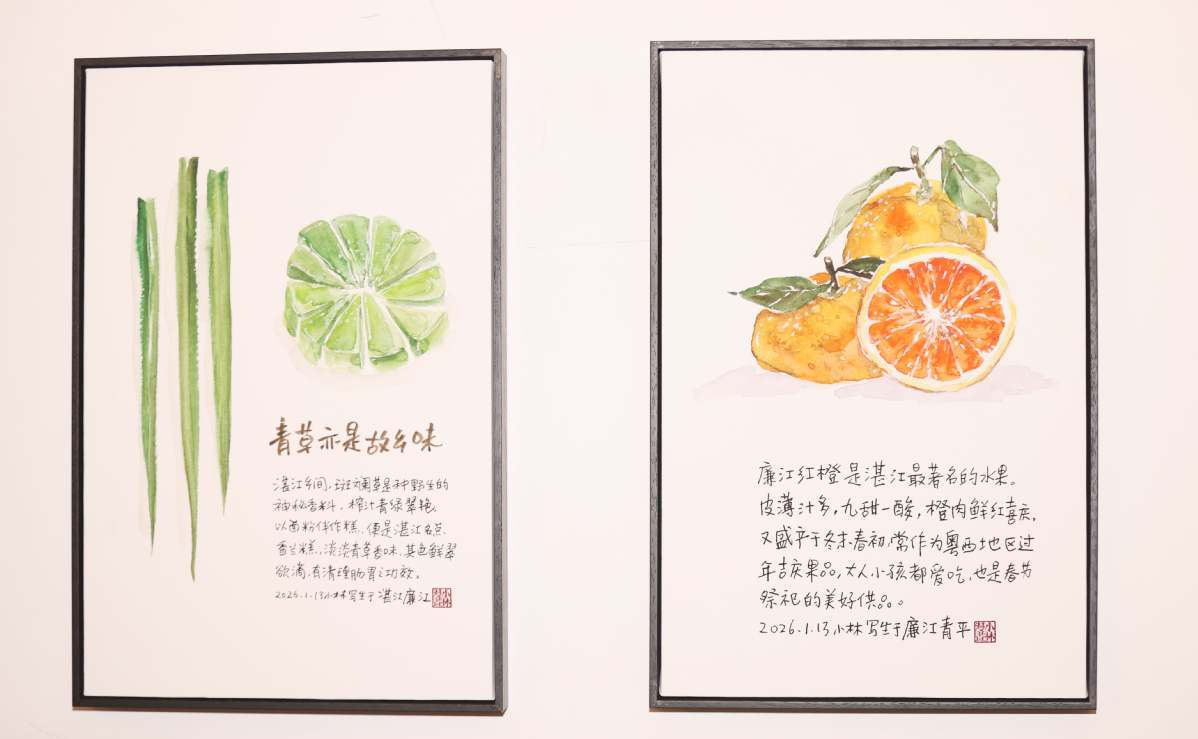 青草亦是故乡味
湛江乡间，斑斓草是种野生的
神秘香料，榨汁青绿翠艳，
以面粉伴作糕，便是湛江名点
香兰糕，淡淡青草香味，其色鲜翠
欲滴，有清理肠胃之功效。
2026.1.13小林写生于湛江廉江
廉江红橙是湛江最著名的水果。
皮薄汁多，九甜一酸，橙肉鲜红喜庆，
又盛产于冬末春初，常作为粤西地区过
年吉庆果品，大人小孩都爱吃，也是春节
祭祀的美好供品。
2026.1.13小林写生于廉江青平